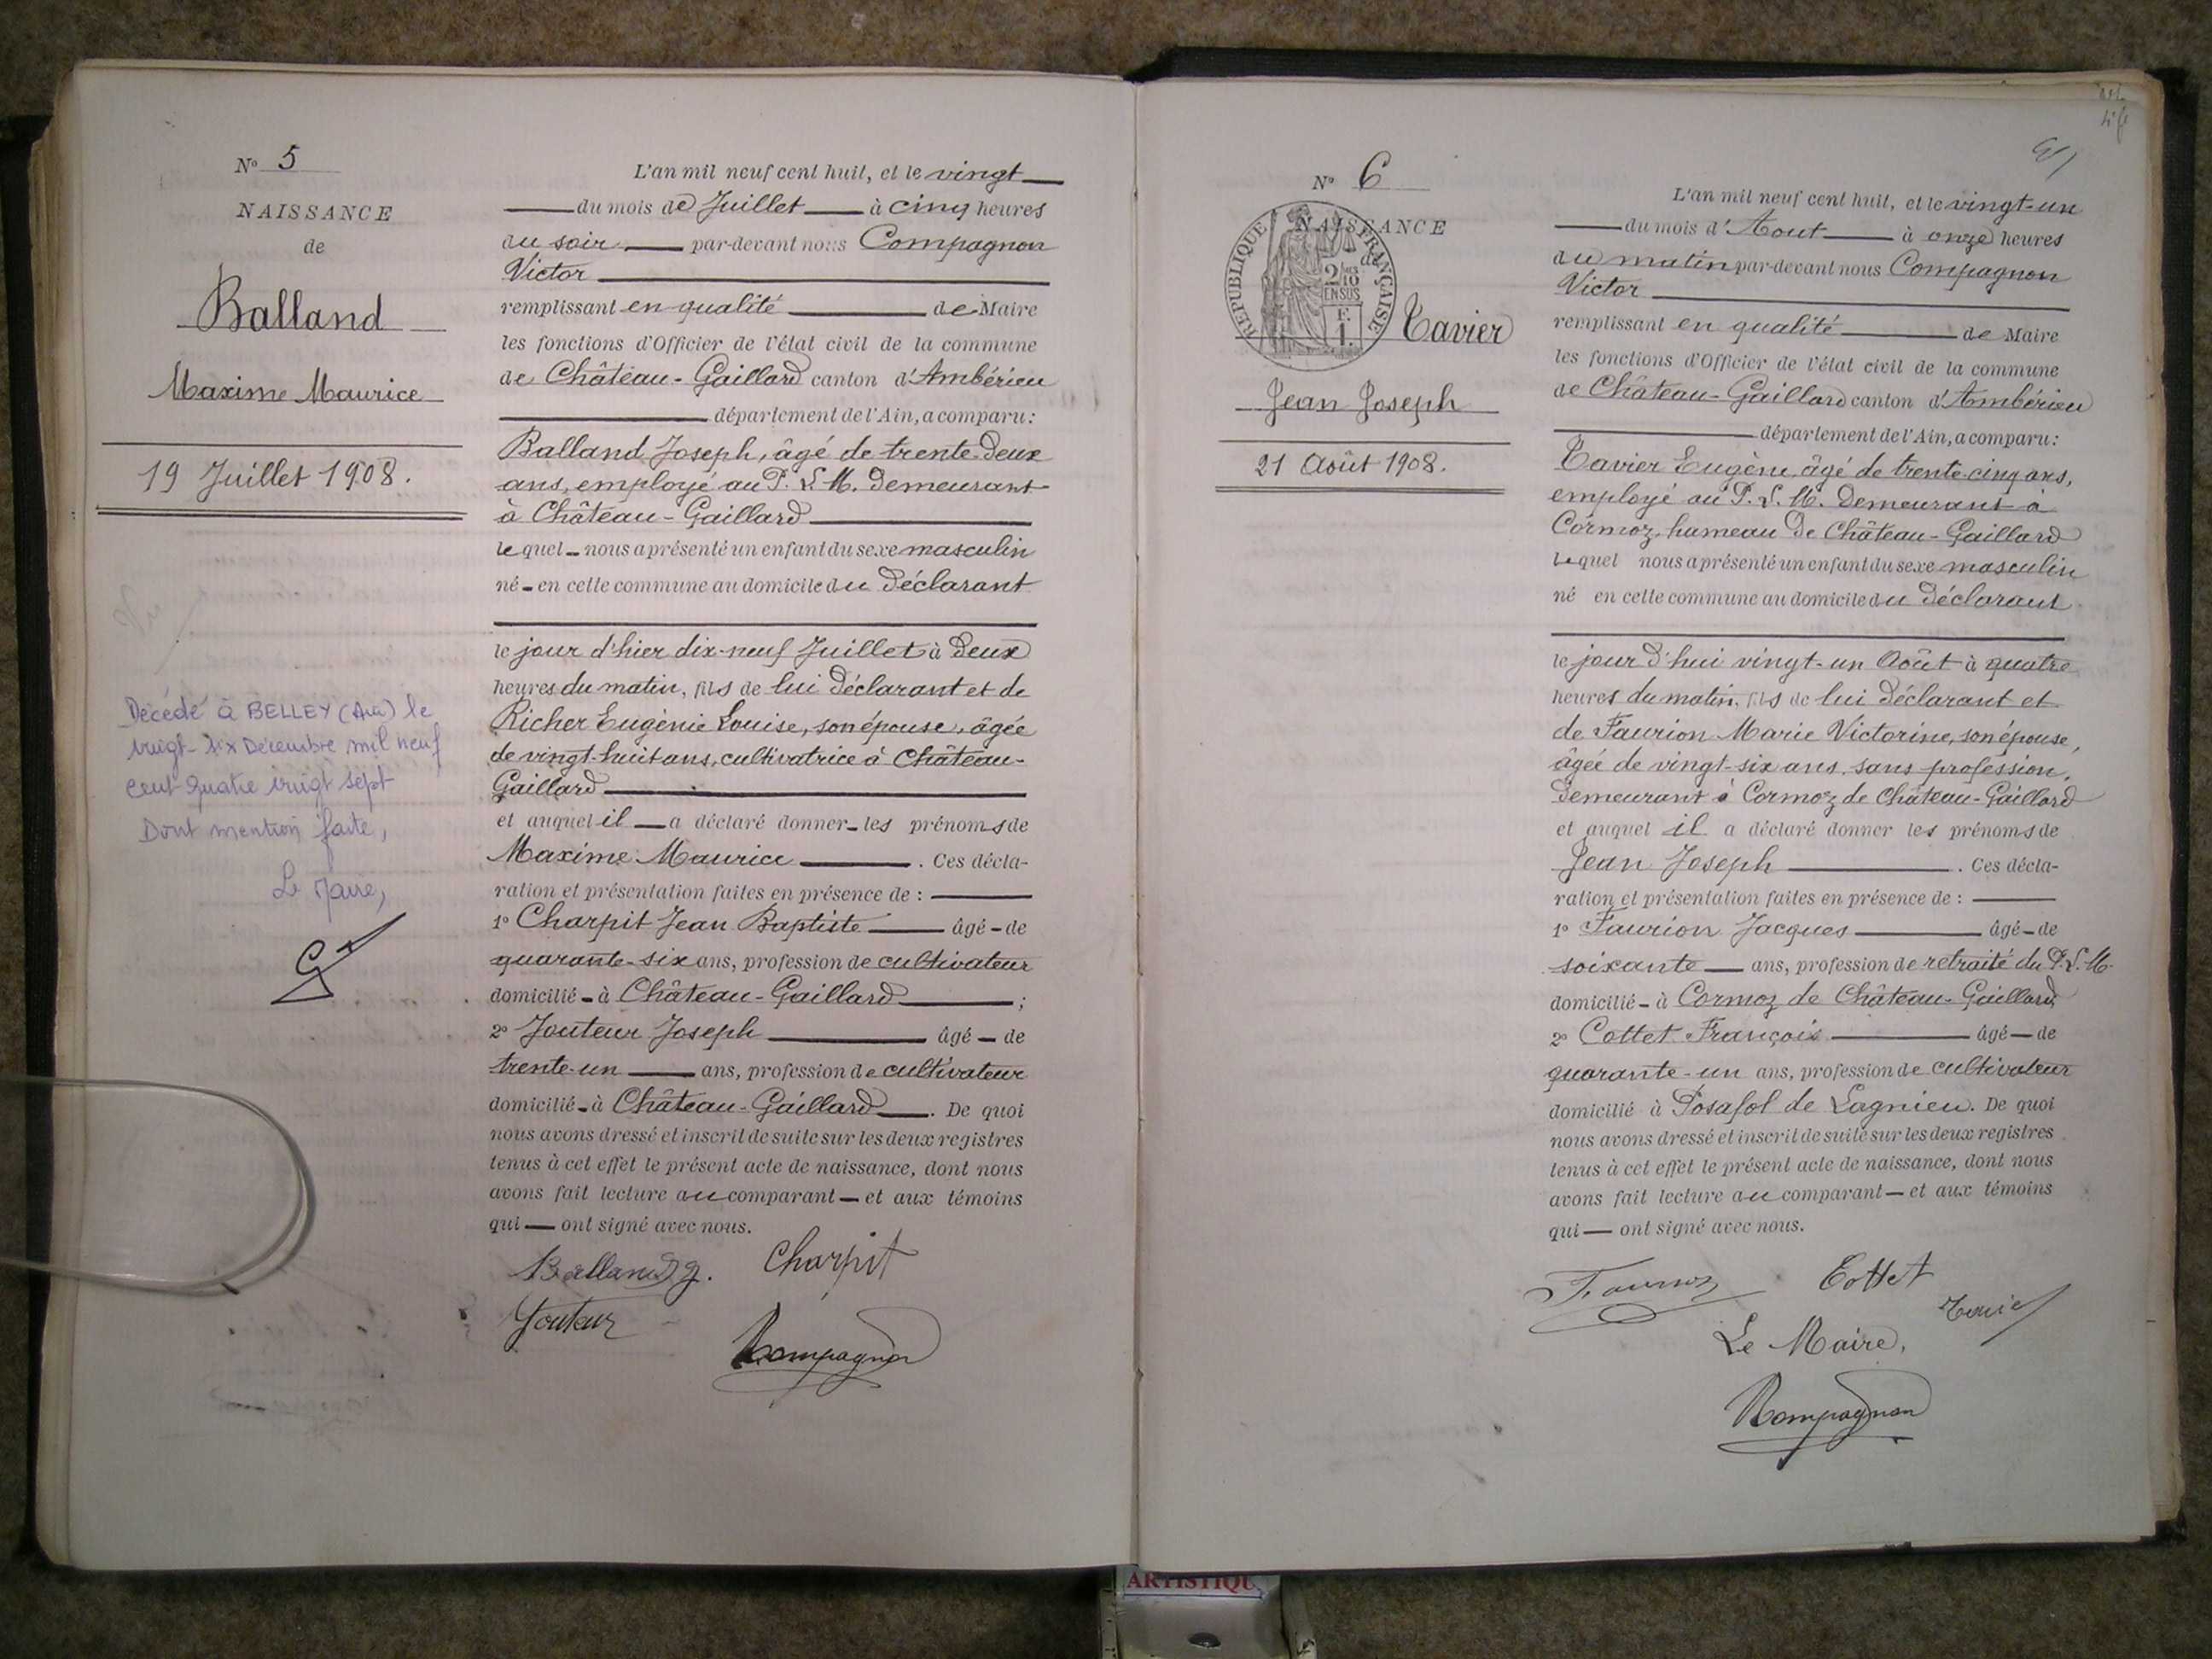 N° 5
NAISSANCE
de
Balland
Maxime Maurice
19 Juillet 1908.
Décédé à BELLEY (Ain) le
vingt-six Décembre mil neuf
cent quatre vingt sept
Dont mention faite,
Le Maire,
L'an mil neuf cent huit, et le vingt
du mois de Juillet à cinq heures
du soir par-devant nous Compagnon
Victor
remplissant en qualité de Maire
les fonctions d'Officier de l'état civil de la commune
de Château-Gaillard canton d'Ambérieu
département de l'Ain, a comparu :
Balland Joseph, âgé de trente-deux
ans, employé au P. L. M. demeurant
à Château-Gaillard
lequel nous a présenté un enfant du sexe masculin
né en cette commune au domicile du déclarant
le jour d'hier dix-neuf Juillet à deux
heures du matin, fils de lui déclarant et de
Richer Eugénie Louise, son épouse, âgée
de vingt-huit ans, cultivatrice à Château-
Gaillard
et auquel il a déclaré donner les prénoms de
Maxime Maurice . Ces décla-
ration et présentation faites en présence de :
1° Charpit Jean Baptiste âgé de
quarante-six ans, profession de cultivateur
domicilié à Château-Gaillard ;
2° Jouteur Joseph âgé de
trente-un ans, profession de cultivateur
domicilié à Château-Gaillard . De quoi
nous avons dressé et inscrit de suite sur les deux registres
tenus à cet effet le présent acte de naissance, dont nous
avons fait lecture au comparant et aux témoins
qui ont signé avec nous.
Balland J. Charpit
Jouteur
Compagnon
N° 6
NAISSANCE
de
REPUBLIQUE FRANÇAISE
2/10 EN SUS
Tavier
Jean Joseph
21 Août 1908.
L'an mil neuf cent huit, et le vingt-un
du mois d'Aout à onze heures
du matin par-devant nous Compagnon
Victor
remplissant en qualité de Maire
les fonctions d'Officier de l'état civil de la commune
de Château-Gaillard canton d'Ambérieu
département de l'Ain, a comparu :
Tavier Eugène, âgé de trente-cinq ans,
employé au P. L. M. demeurant à
Cormoz, hameau de Château-Gaillard
lequel nous a présenté un enfant du sexe masculin
né en cette commune au domicile du déclarant
le jour d'hui vingt-un Août à quatre
heures du matin, fils de lui déclarant et
de Faurion Marie Victorine, son épouse,
âgée de vingt-six ans, sans profession,
demeurant à Cormoz de Château-Gaillard
et auquel il a déclaré donner les prénoms de
Jean Joseph . Ces décla-
ration et présentation faites en présence de :
1° Faurion Jacques âgé de
soixante ans, profession de retraité du P. L. M.
domicilié à Cormoz de Château-Gaillard
2° Cottet François âgé de
quarante-un ans, profession de cultivateur
domicilié à Posafol de Lagnieu. De quoi
nous avons dressé et inscrit de suite sur les deux registres
tenus à cet effet le présent acte de naissance, dont nous
avons fait lecture au comparant et aux témoins
qui ont signé avec nous.
Cottet
Tavier
Le Maire,
Compagnon
ARTISTIQU